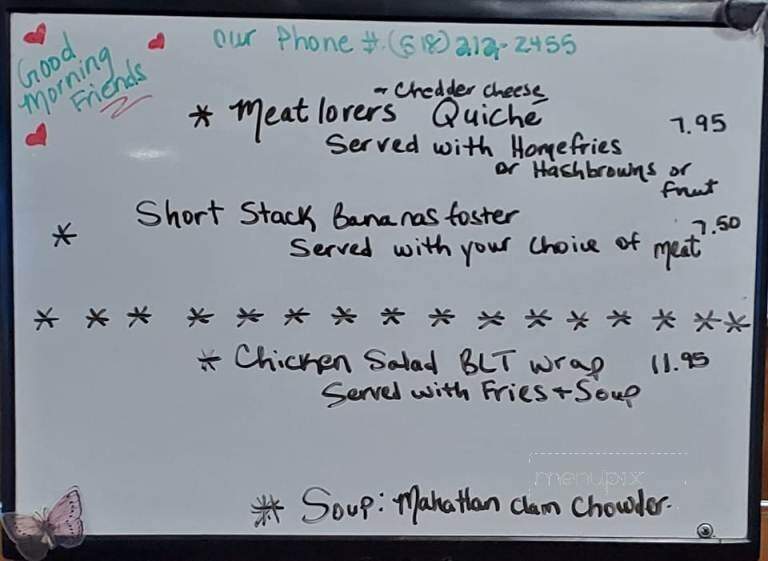 Good
Morning
Friends
Our Phone #. (518) 212-2455
- Chedder cheese
* Meat lovers Quiche 7.95
Served with Homefries
or Hashbrowns or
fruit
* Short Stack Bananas foster
Served with your choice of meat 7.50
* * * * * * * * * * * * * * *
* Chicken Salad BLT wrap 11.95
Served with Fries + Soup
menupix
* Soup: Mahattan clam Chowder.